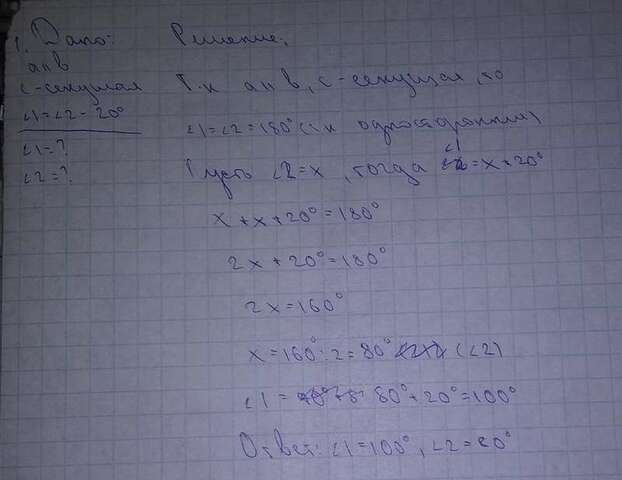 1. Дано:
a ıı в
c-секущая
∠1=∠2-20°
∠1=?
∠2=?
Решение:
Т.к a ıı в, c-секущая, то
∠1=∠2=180° (т.к односторонние)
Пусть ∠2=x, тогда ∠1=x+20°
x+x+20°=180°
2x+20°=180°
2x=160°
x=160°:2=80° (∠2)
∠1= 80°+20°=100°
Ответ: ∠1=100°, ∠2=80°